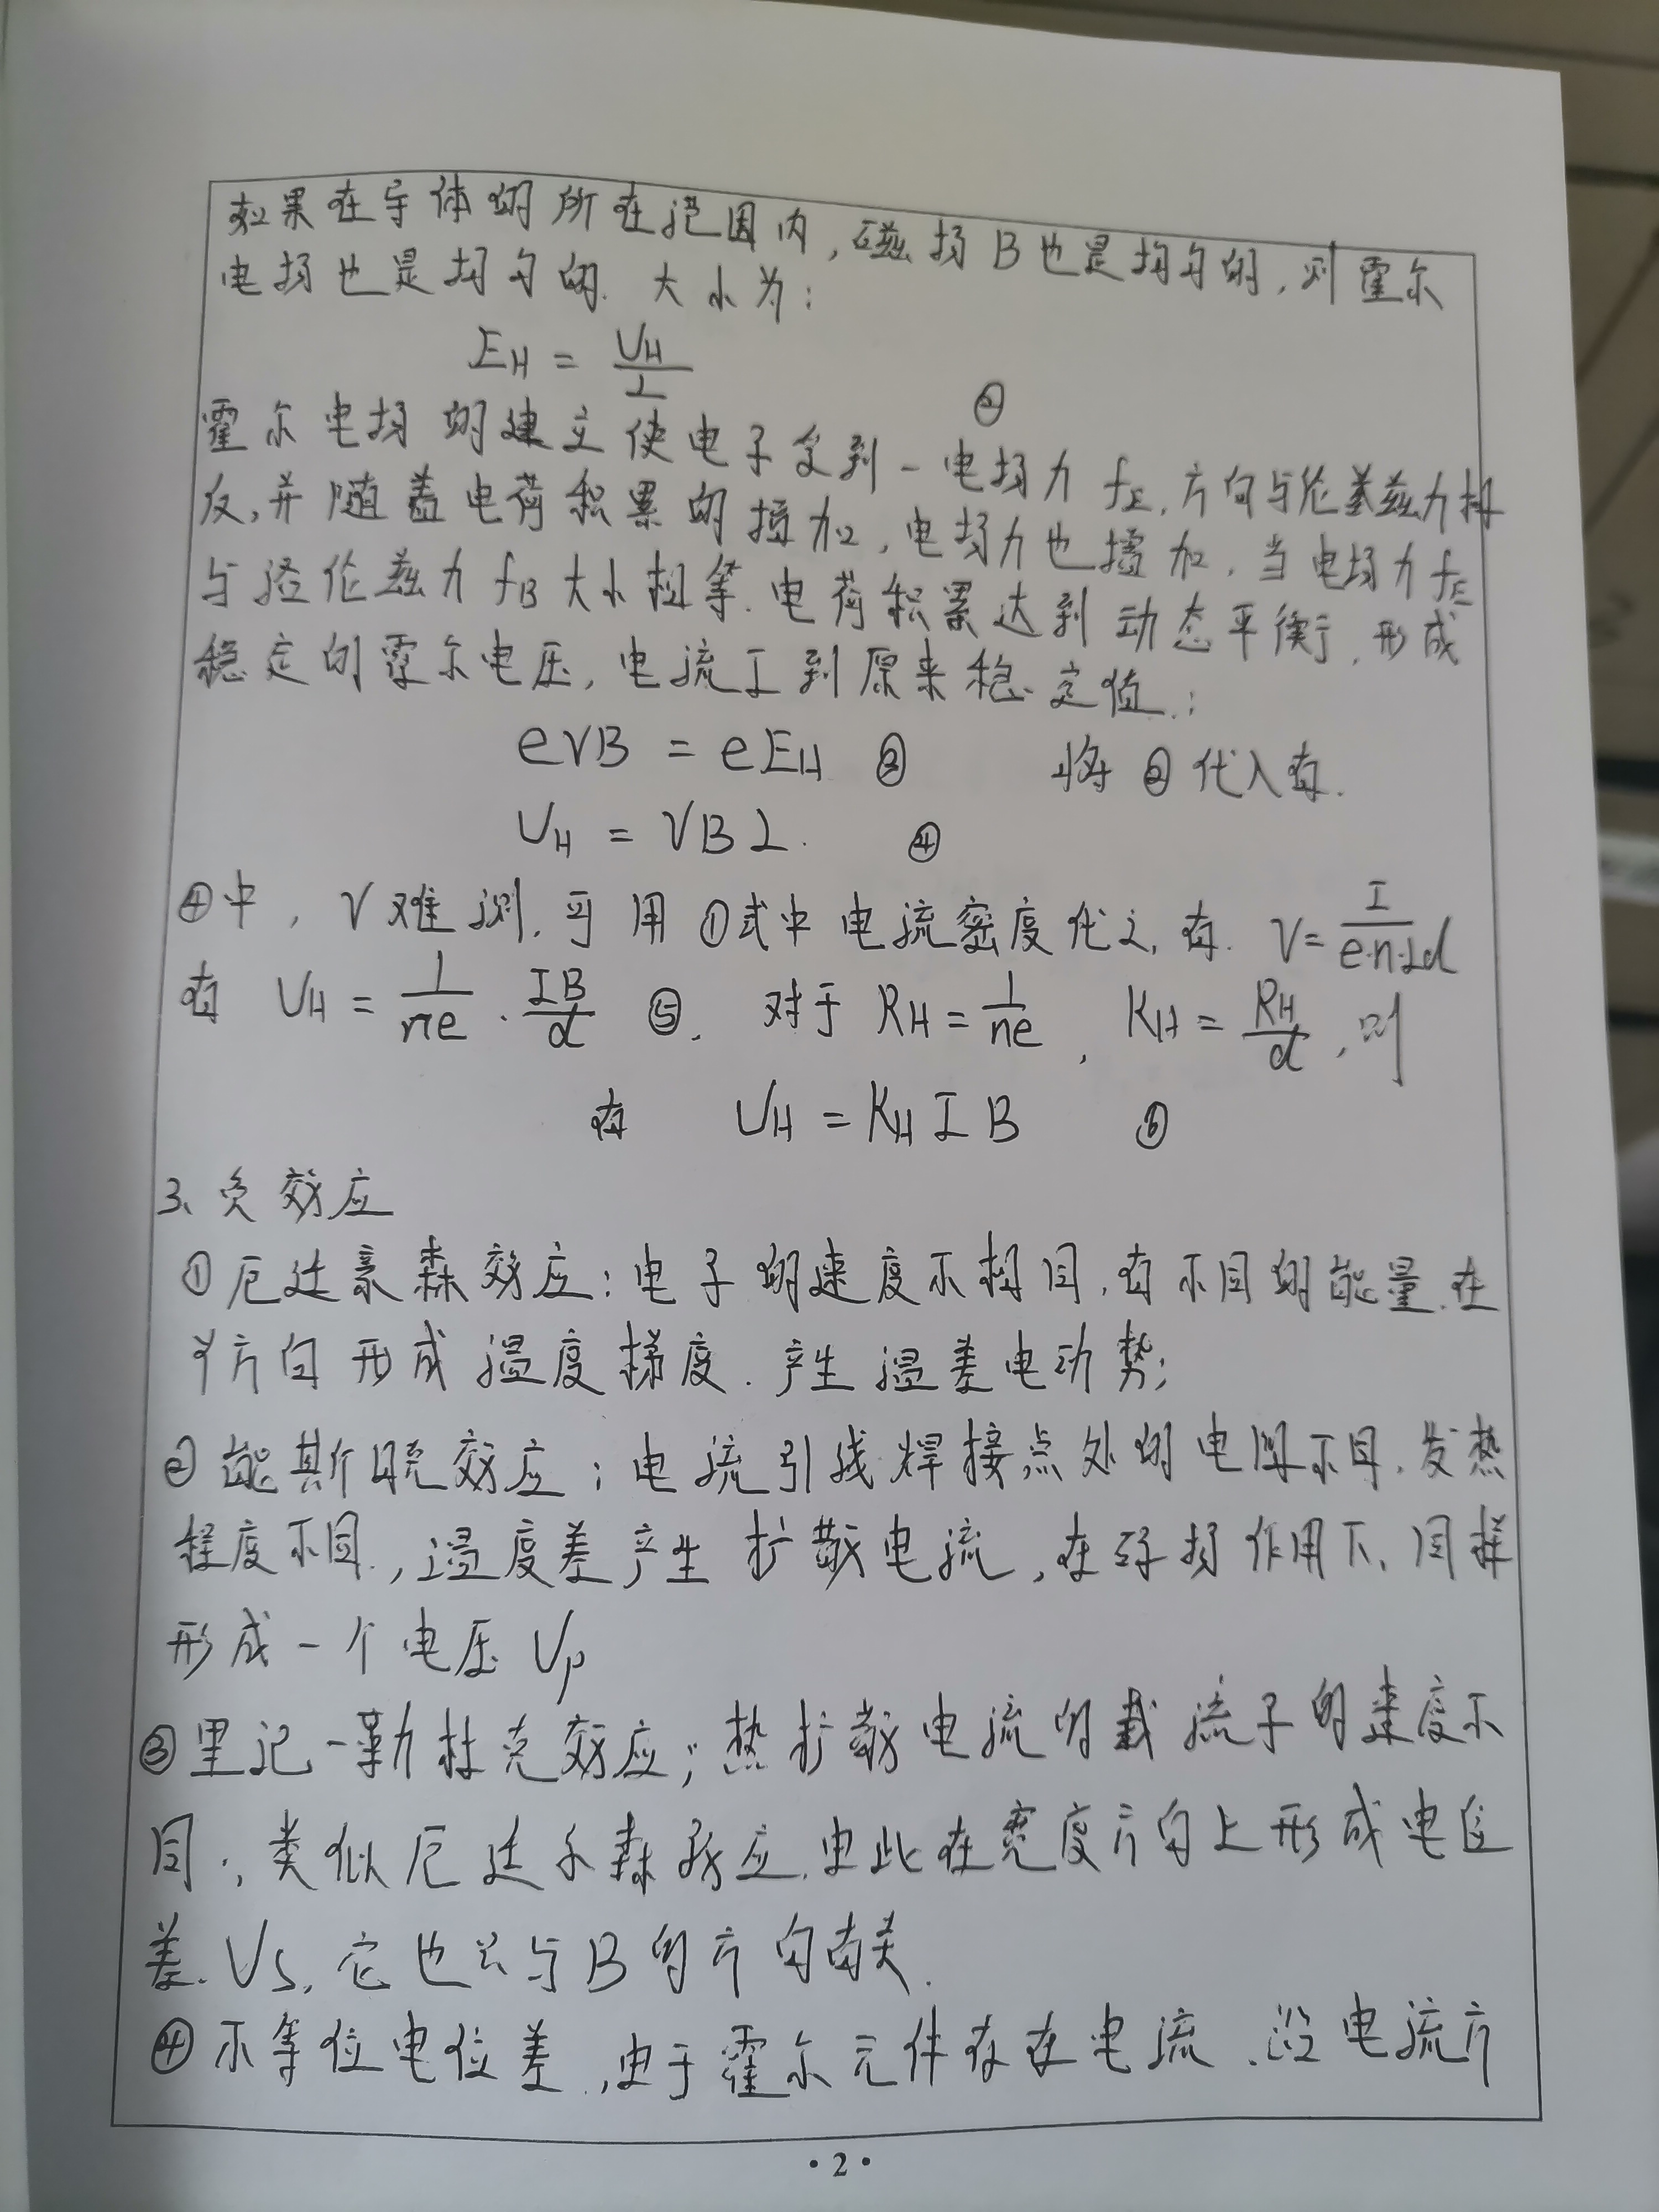 如果在导体的所在范围内,磁场B也是均匀的,则霍尔
电场也是均匀的. 大小为:
E_H = U_H/L ②
霍尔电场的建立使电子受到一电场力 f_E, 方向与伦兹力相
反,并随着电荷积累的增加,电场力也增加,当电场力 f_E
与洛伦兹力 f_B 大小相等.电荷积累达到动态平衡,形成
稳定的霍尔电压,电流I到原来稳定值:
evB = eE_H ③ 将②代入有.
U_H = VBL. ④
④中, V难测,可用①式中电流密度代之,有. V = I/(e·n·Ld)
有 U_H = 1/(ne) · IB/d ⑤. 对于 R_H = 1/(ne), K_H = R_H/d, 则
有 U_H = K_H I B ⑥
3、负效应
①厄廷豪森效应:电子的速度不相同,有不同的能量.在
Y方向形成温度梯度.产生温差电动势;
②能斯脱效应:电流引线焊接点处的电阻不同.发热
程度不同.,温度差产生扩散电流,在磁场作用下、同样
形成一个电压 V_P
③里记-勒杜克效应;热扩散电流的载流子的速度不
同,类似厄廷森效应.由此在宽度方向上形成电位
差.V_S,它也只与B的方向有关.
④不等位电位差.,由于霍尔元件存在电流.沿电流方
·2·